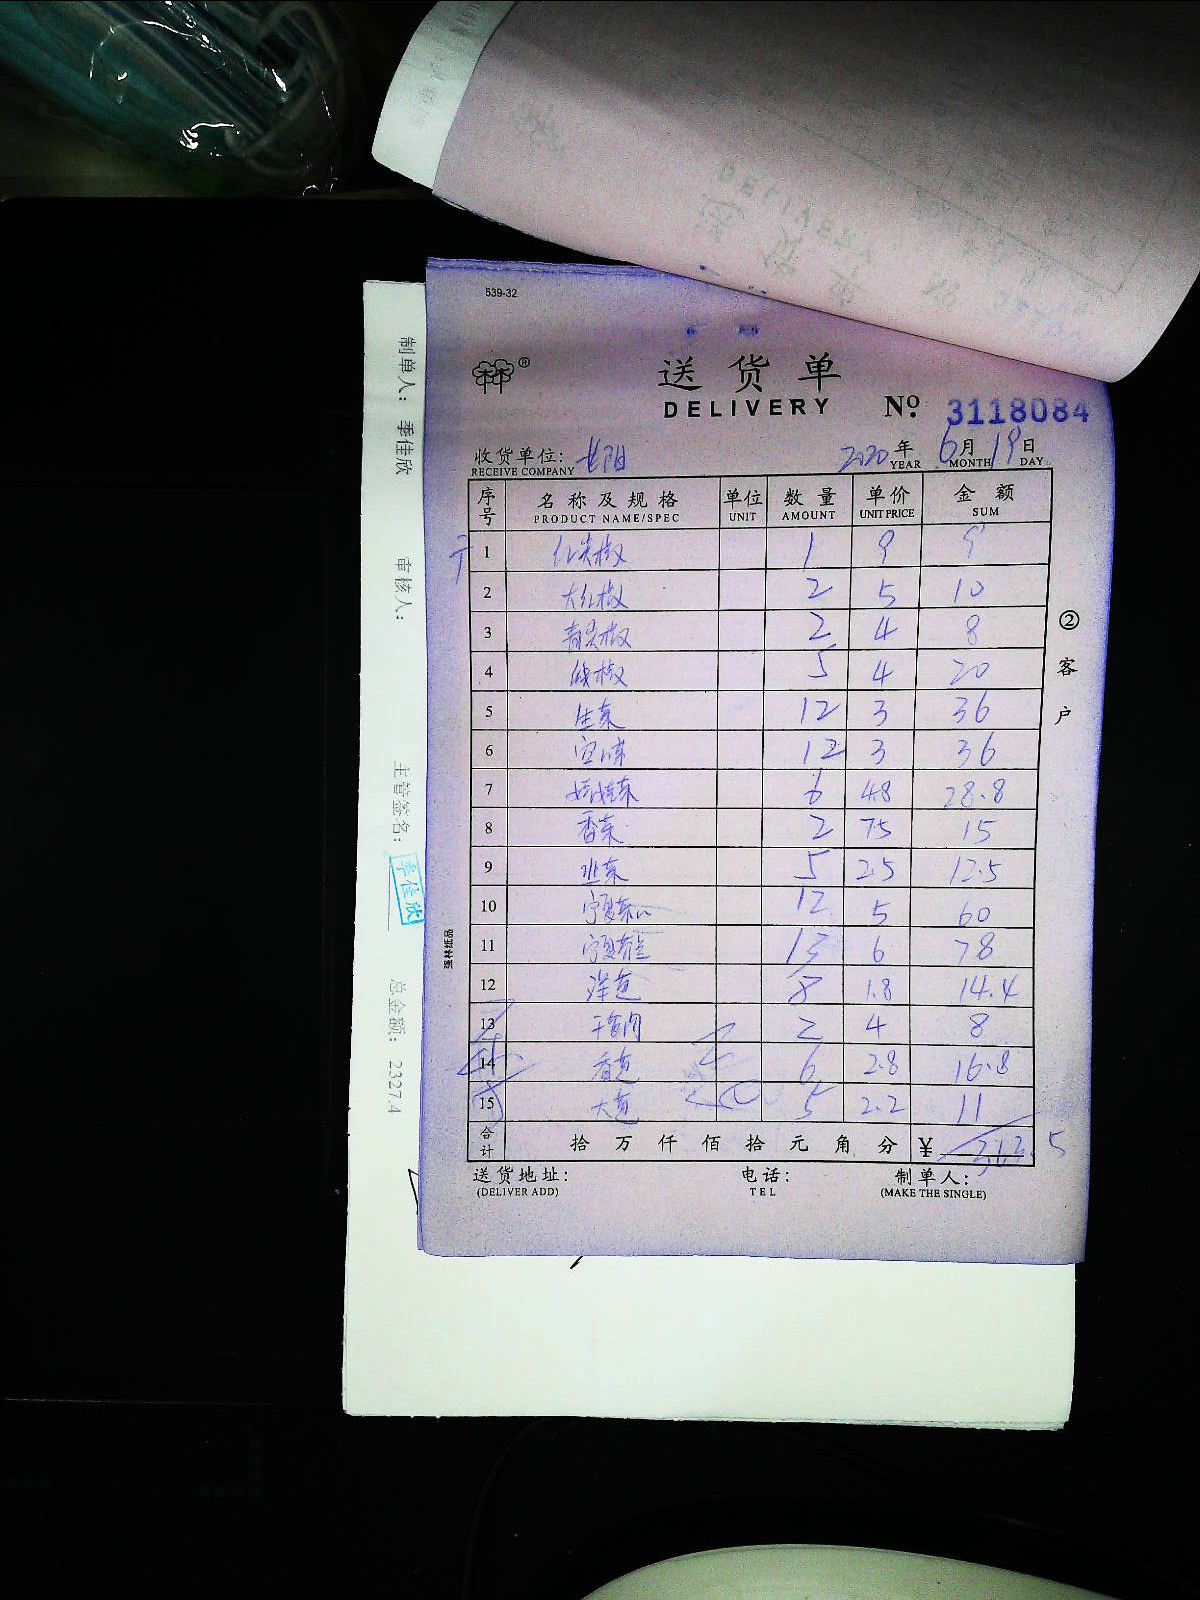 539-32
送货单
DELIVERY
No. 3118084
收货单位: 长阳 2020年 6月 19日
RECEIVE COMPANY YEAR MONTH DAY
序号 名称及规格 单位 数量 单价 金额
PRODUCT NAME/SPEC UNIT AMOUNT UNIT PRICE SUM
1 红尖椒 1 9 9
2 大红椒 2 5 10
3 青尖椒 2 4 8
4 线椒 5 4 20
5 生菜 12 3 36
6 12 3 36
7 娃娃菜 6 4.8 28.8
8 香菜 2 7.5 15
9 韭菜 5 2.5 12.5
10 宁夏菜心 12 5 60
11 宁夏 13 6 78
12 洋葱 8 1.8 14.4
13 干葱肉 2 4 8
14 香葱 6 2.8 16.8
15 大葱 5 2.2 11
合计 拾万仟佰拾元角分 ¥ 313.5
送货地址: 电话: 制单人:
(DELIVER ADD) TEL (MAKE THE SINGLE)
②客户
强林纸品
制单人: 季佳欣 审核人: 主管签名: 季佳欣 总金额: 2327.4